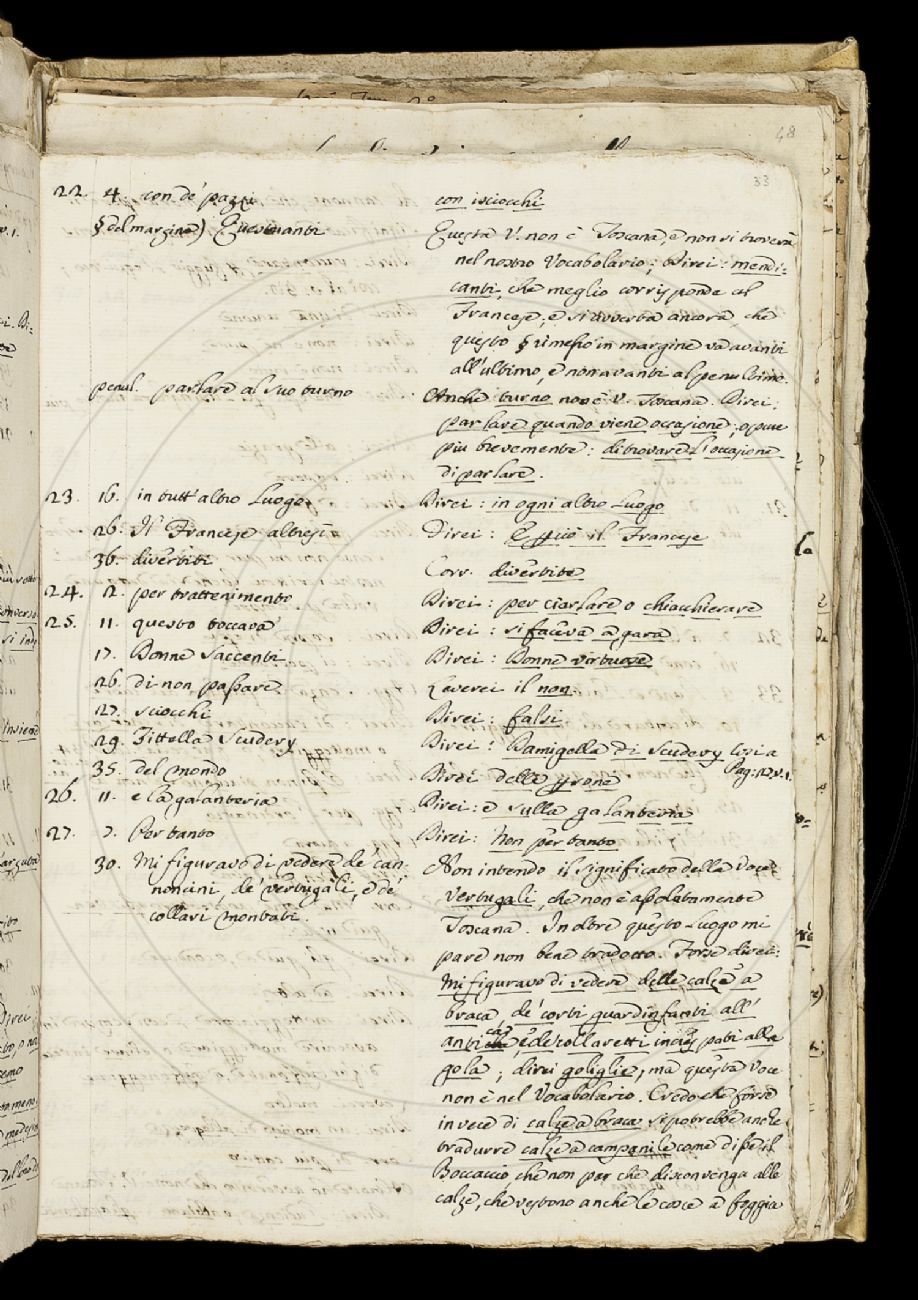 48
33
22. 4. con de' pazzi con isciocchi
§ del margine) Questuanti Questa V. non è Toscana, e non si troverà
nel nostro Vocabolario; Direi: mendi:
canti, che meglio corrisponde al
Francese, e si avverta ancora, che
questo § rimesso in margine va avanti
all'ultimo, e non avanti al penultimo.
penul. parlare al suo turno Anche turno non è V. Toscana. Direi:
parlare quando viene occasione, o pure
più brevemente: di trovare l'occasione
di parlare.
23. 16. in tutt'altro Luogo Direi: in ogni altro Luogo
26. Il Francese altresì Direi: E più il Francese
36. divertiti Corr. divertite
24. 12. per trattenimento Direi: per ciarlare o chiacchierare
25. 11. questo toccava Direi: si faceva a gara
17. Donne Saccenti Direi: Donne virtuose
26. di non passare Leverei il non
27. sciocchi Direi: falsi
29. Zittella Scudery Direi: Damigella di Scudery
Pag: 12. v. 1.
35. del mondo Direi delle persone
26. 11. e la galanteria Direi: e sulla galanteria
27. 7. Per tanto Direi: Non per tanto
30. Mi figuravo di vedere de' can: Non intendo il significato della voce
noncini, de' vertugali, e de' Vertugali, che non è assolutamente
collari montati. Toscana. In oltre questo Luogo mi
pare non bene tradotto. Forse direi:
Mi figuravo di vedere delle calze a
braca, de' corti guardinfanti all'
antica, e de' collaretti pati alla
gola; direi goliglie, ma questa voce
non è nel Vocabolario. Credo che forse
in vece di calze a braca si potrebbe anche
tradurre calze a campanile come disse il
Boccaccio, che non par che disconvenga alle
calze, che vestono anche le cosce a foggia